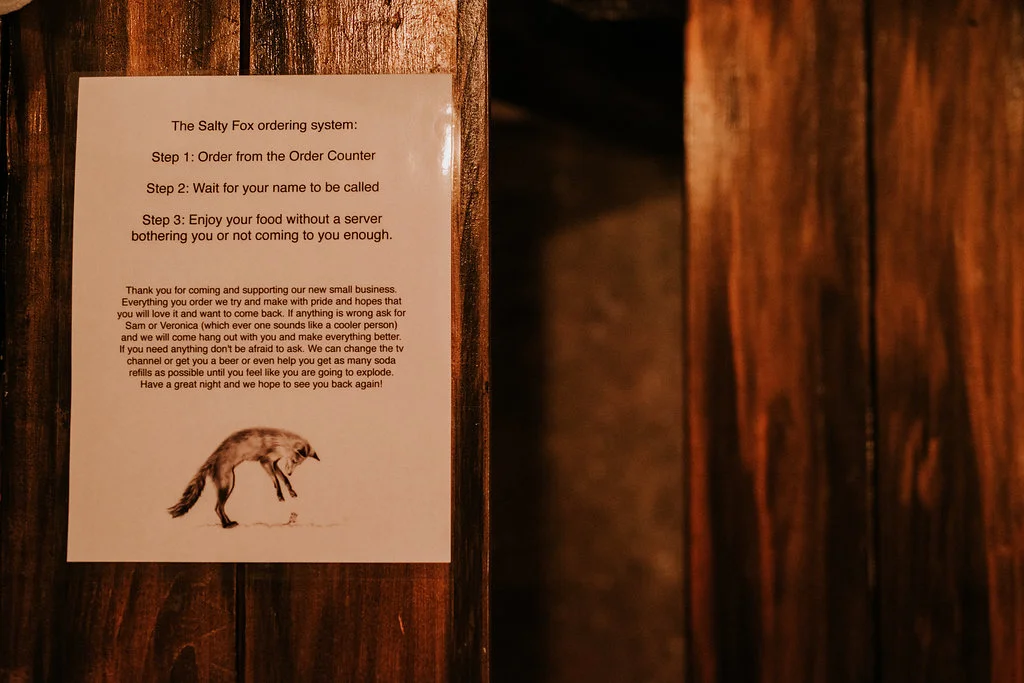 The Salty Fox ordering system:
Step 1: Order from the Order Counter
Step 2: Wait for your name to be called
Step 3: Enjoy your food without a server
bothering you or not coming to you enough.
Thank you for coming and supporting our new small business.
Everything you order we try and make with pride and hopes that
you will love it and want to come back. If anything is wrong ask for
Sam or Veronica (which ever one sounds like a cooler person)
and we will come hang out with you and make everything better.
If you need anything don't be afraid to ask. We can change the tv
channel or get you a beer or even help you get as many soda
refills as possible until you feel like you are going to explode.
Have a great night and we hope to see you back again!